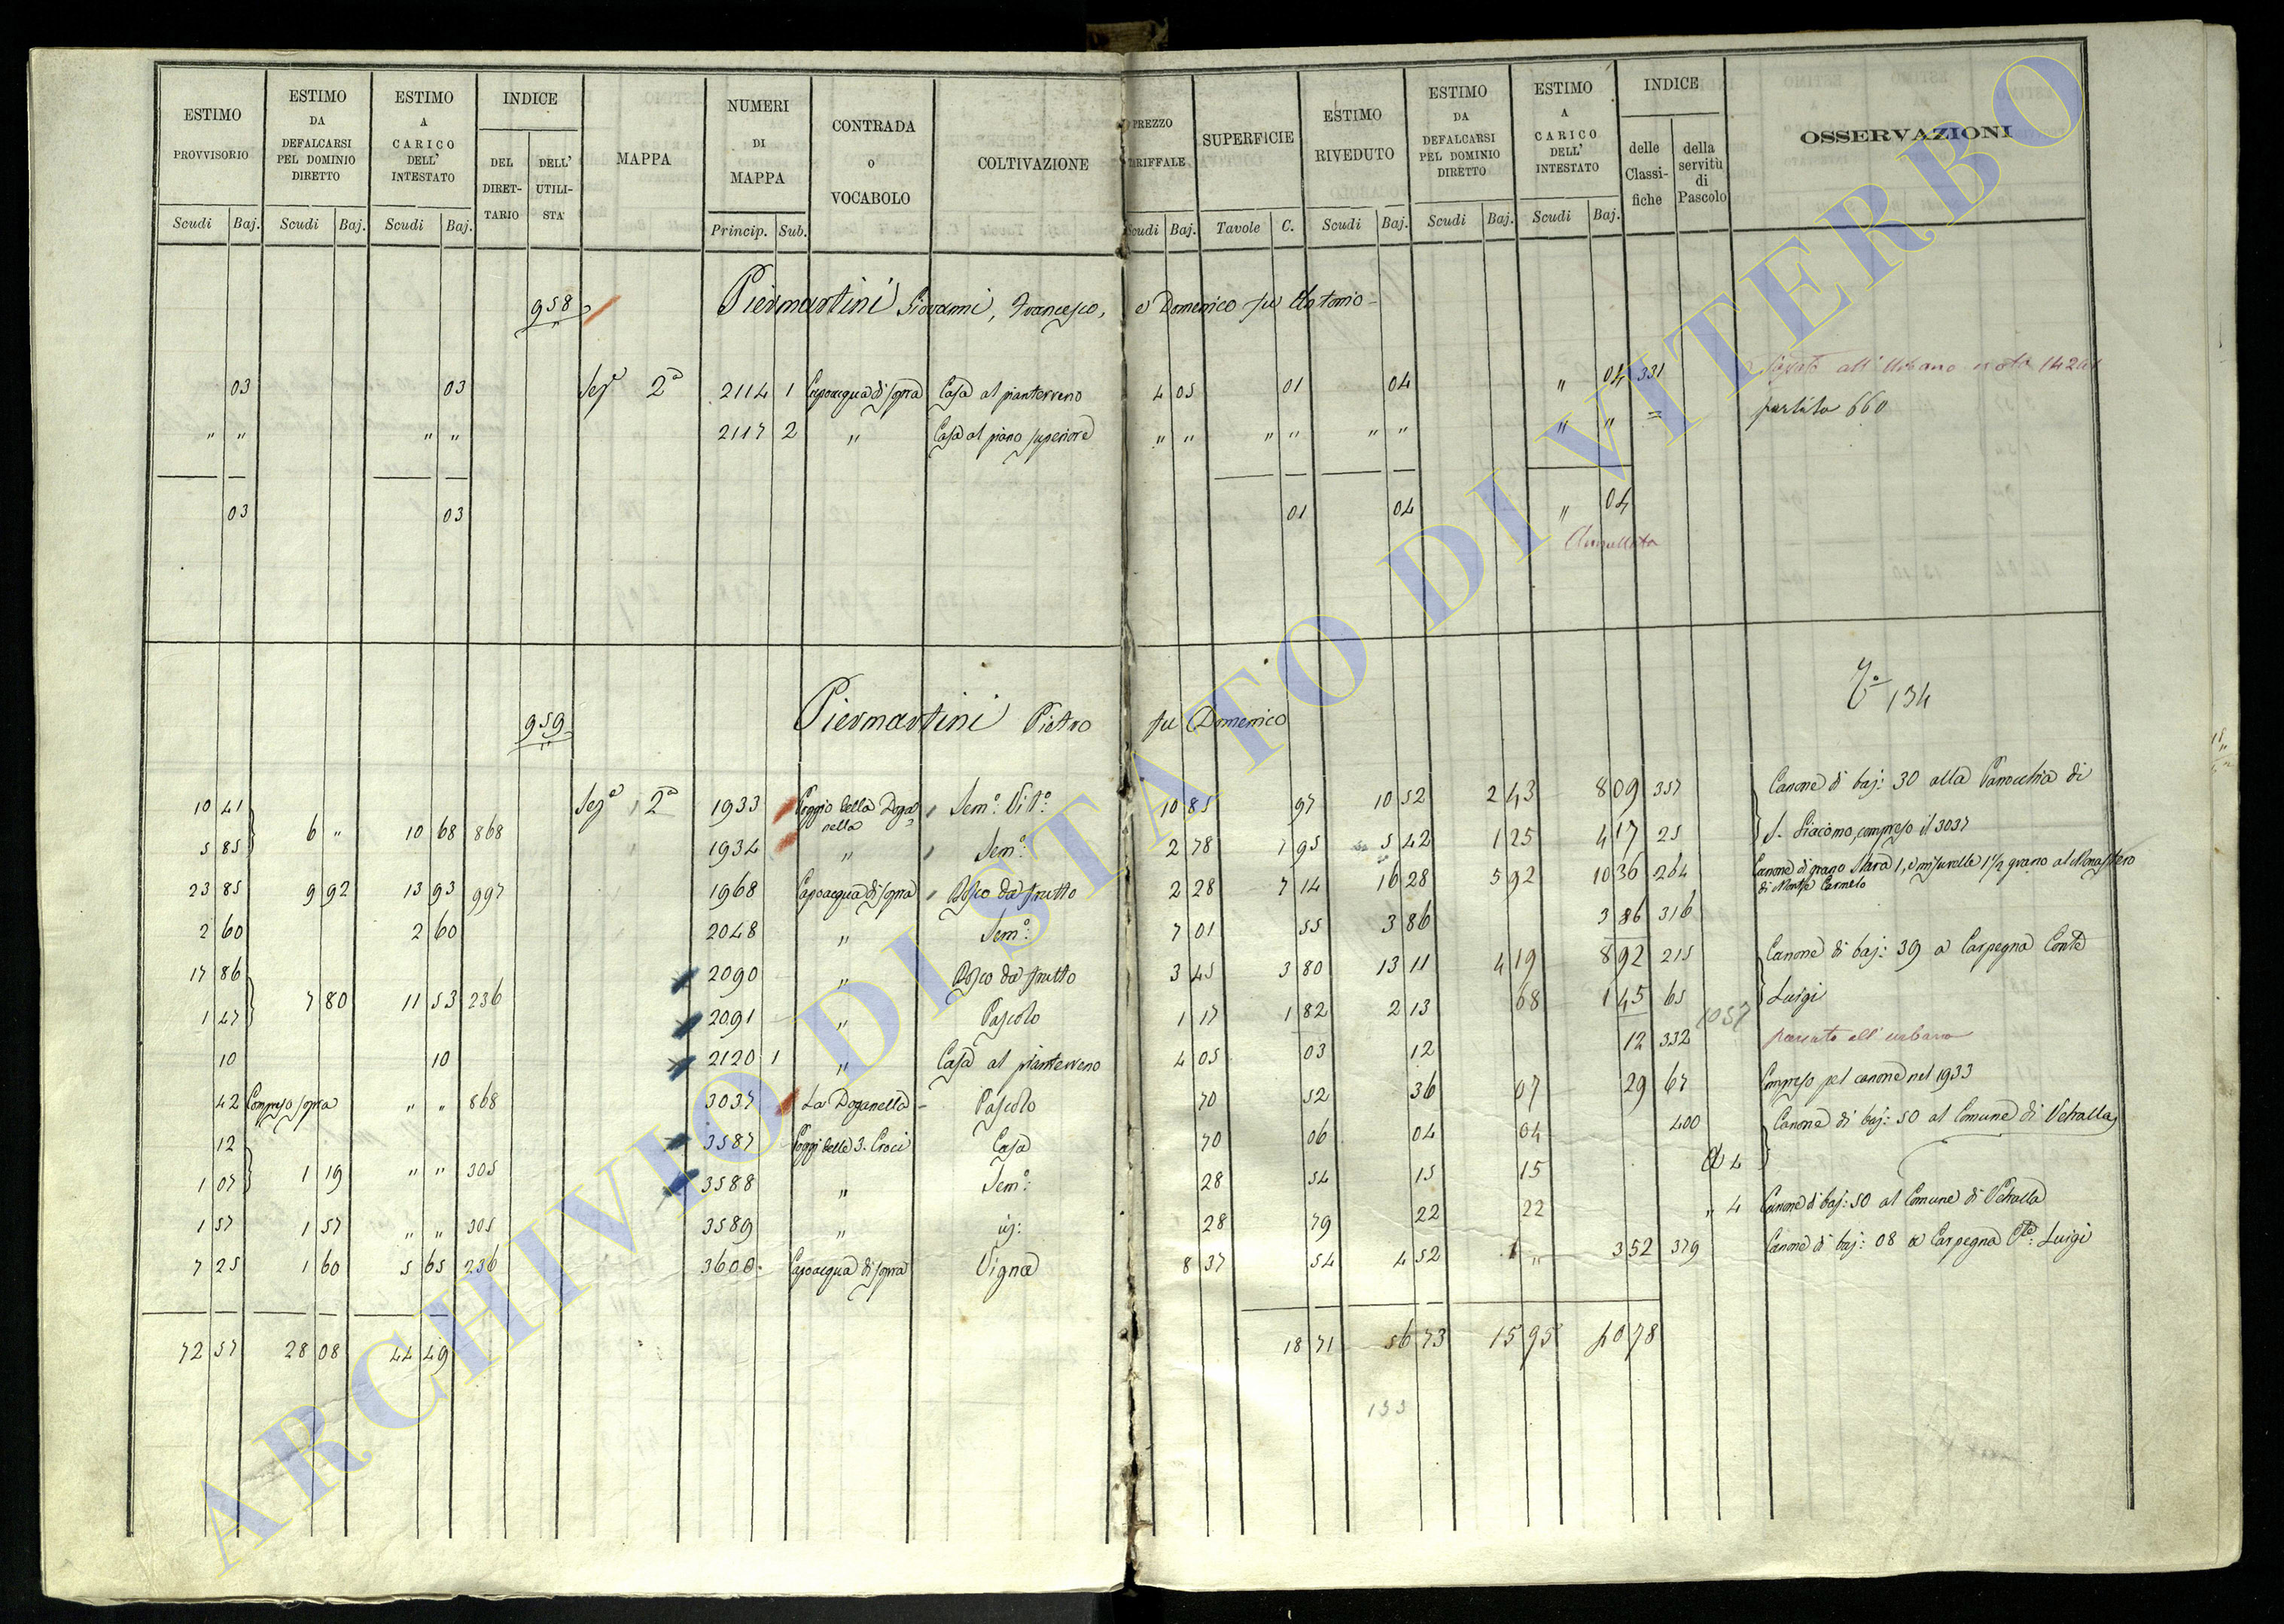 ESTIMO PROVVISORIO | ESTIMO DA DEFALCARSI PEL DOMINIO DIRETTO | ESTIMO A CARICO DELL' INTESTATO | INDICE | MAPPA | NUMERI DI MAPPA | CONTRADA O VOCABOLO | COLTIVAZIONE | PREZZO | SUPERFICIE | ESTIMO RIVEDUTO | ESTIMO DA DEFALCARSI PEL DOMINIO DIRETTO | ESTIMO A CARICO DELL' INTESTATO | INDICE | OSSERVAZIONI
DEL DIRETTARIO | DELL' UTILISTA | delle Classifiche | della servitù di Pascolo
Scudi | Baj. | Scudi | Baj. | Scudi | Baj. | Princip. | Sub. | Scudi | Baj. | Tavole | C. | Scudi | Baj. | Scudi | Baj. | Scudi | Baj.
958 Piermartini Giovanni, Francesco, e Domenico fu Antonio
03 | 03 | Sez.e 2a | 2114 | 1 | Capoacqua di sopra | Casa al pianterreno | 4 05 | 01 | 04 | " 04 | 331 | all'Urbano
" " | " " | 2117 | 2 | " | Casa al piano superiore | " " | " " | " " | " " | = | partita 660
03 | 03 | 01 | 04 | " 04
Annullata
Va 134
959 Piermartini Pietro fu Domenico
10 41 | Sez.e 2a | 1933 | Poggio della Doganella | Sem.o Vit.o | 10 85 | 97 | 10 52 | 2 43 | 8 09 | 357 | Canone di baj: 30 alla Parocchia di
5 85 | 6 " | 10 68 | 868 | 1934 | " | Sem.o: | 2 78 | 1 95 | 5 42 | 1 25 | 4 17 | 25 | S. Giacomo, compreso il 3037
23 85 | 9 92 | 13 93 | 997 | 1968 | Capoacqua di sopra | Bosco da frutto | 2 28 | 7 14 | 16 28 | 5 92 | 10 36 | 264 | Canone di grano Stara 1, e misurelle 1 1/2 grano al Monastero
di Monte Carmelo
2 60 | 2 60 | 2048 | " | Sem.o: | 7 01 | 55 | 3 86 | 3 86 | 316
17 86 | 2090 | " | Bosco da frutto | 3 45 | 3 80 | 13 11 | 4 19 | 8 92 | 215 | Canone di baj: 39 a Carpegna Conte
1 47 | 7 80 | 11 53 | 236 | 2091 | " | Pascolo | 1 17 | 1 82 | 2 13 | 68 | 1 45 | 65 | 1057 | Luigi
10 | 10 | 2120 | 1 | " | Casa al pianterreno | 4 05 | 03 | 12 | 12 | 332 | passato all'urbano
42 | Compreso sopra | " " | 868 | 3037 | La Doganella | Pascolo | 70 | 52 | 36 | 07 | 29 | 67 | Compreso pel canone nel 1933
12 | 3587 | Poggi delle 3. Croci | Casa | 70 | 06 | 04 | 04 | 400 | Canone di baj: 50 al Comune di Vetralla
1 07 | 1 19 | " " | 305 | 3588 | " | Sem.o: | 28 | 54 | 15 | 15 | A 4
1 57 | 1 57 | " " | 305 | 3589 | " | id: | 28 | 79 | 22 | 22 | " 4 | Canone di baj: 50 al Comune di Vetralla
7 25 | 1 60 | 5 65 | 236 | 3600 | Capoacqua di sopra | Vigna | 8 37 | 54 | 4 52 | 1 " | 3 52 | 379 | Canone di baj: 08 a Carpegna C.te: Luigi
72 57 | 28 08 | 44 49 | 18 71 | 56 73 | 15 95 | 40 78
133
ARCHIVIO DI STATO DI VITERBO